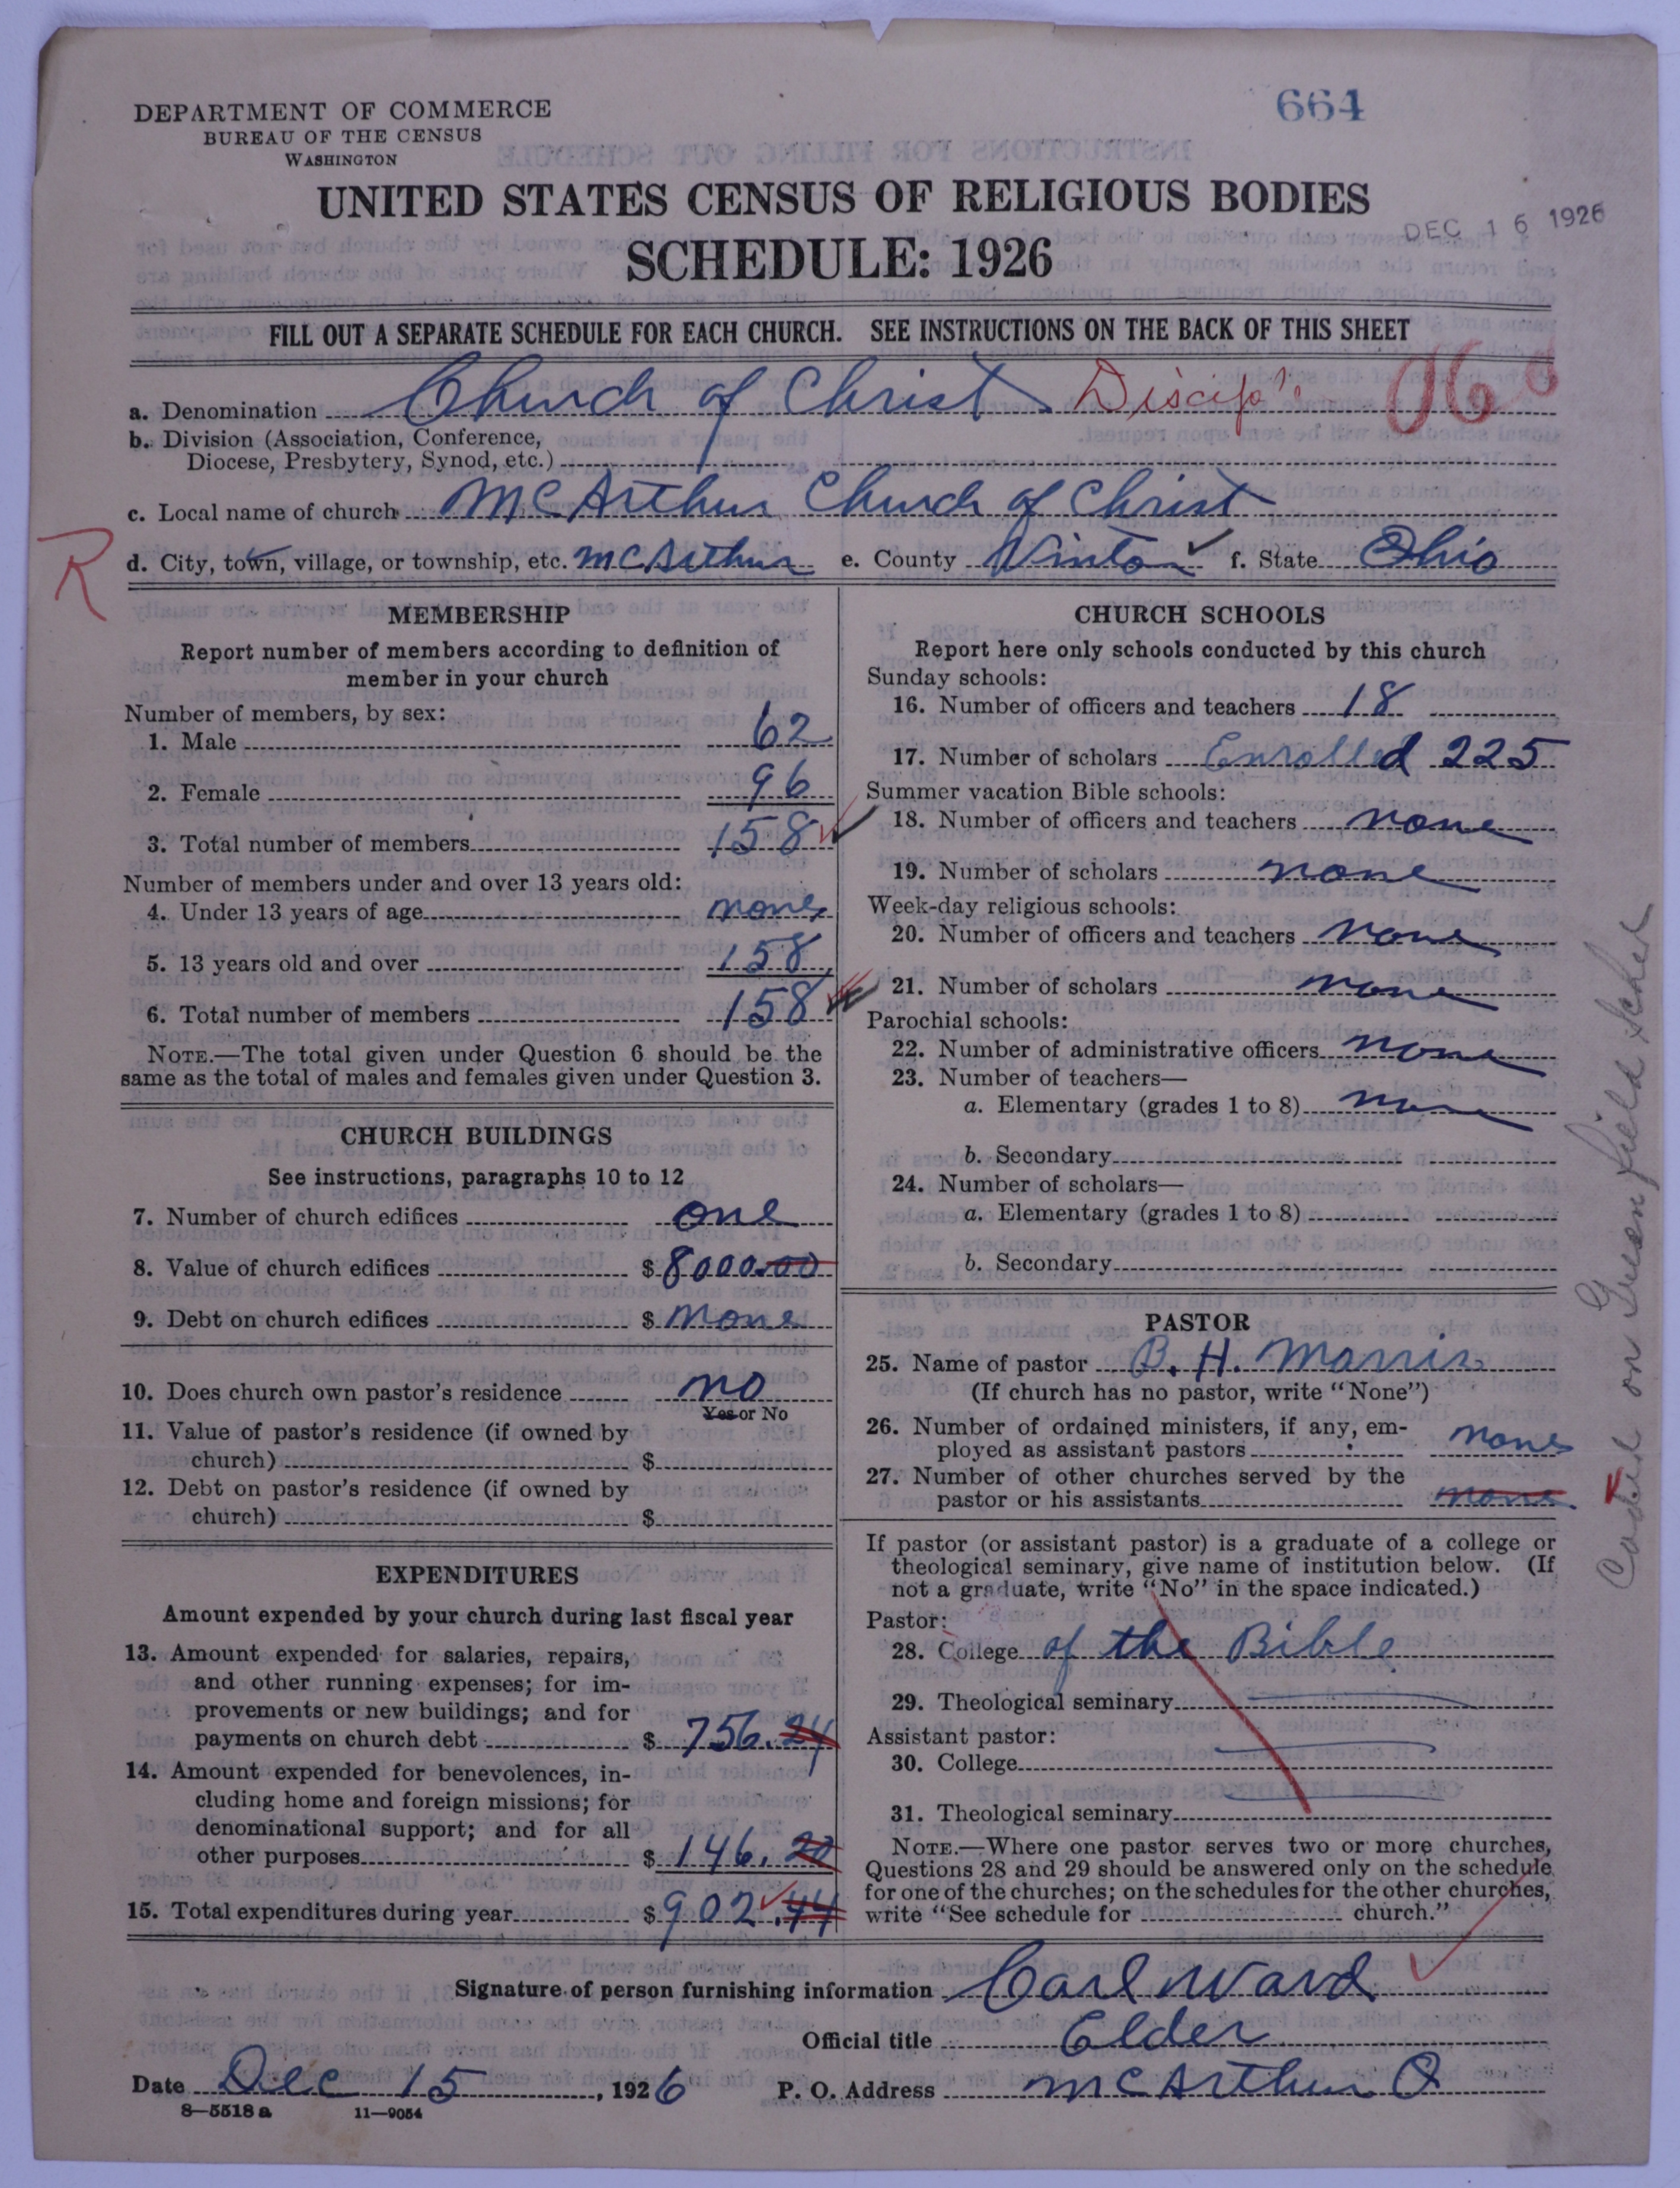 664
DEPARTMENT OF COMMERCE
BUREAU OF THE CENSUS
WASHINGTON
UNITED STATES CENSUS OF RELIGIOUS BODIES
DEC 16 1926
SCHEDULE: 1926
FILL OUT A SEPARATE SCHEDULE FOR EACH CHURCH. SEE INSTRUCTIONS ON THE BACK OF THIS SHEET
a. Denomination Church of Christ
b. Division (Association, Conference,
Diocese, Presbytery, Synod, etc.)
c. Local name of church McArthur Church of Christ
R
d. City, town, village, or township, etc. McArthur e. County Vinton f. State Ohio
MEMBERSHIP
Report number of members according to definition of
member in your church
Number of members, by sex:
1. Male 62
2. Female 96
3. Total number of members 158
Number of members under and over 13 years old:
4. Under 13 years of age none
5. 13 years old and over 158
6. Total number of members 158
NOTE.—The total given under Question 6 should be the
same as the total of males and females given under Question 3.
CHURCH BUILDINGS
See instructions, paragraphs 10 to 12
7. Number of church edifices one
8. Value of church edifices $ 8000.00
9. Debt on church edifices $ none
10. Does church own pastor's residence no
Yes or No
11. Value of pastor's residence (if owned by
church) $
12. Debt on pastor's residence (if owned by
church) $
EXPENDITURES
Amount expended by your church during last fiscal year
13. Amount expended for salaries, repairs,
and other running expenses; for im-
provements or new buildings; and for
payments on church debt $ 756.24
14. Amount expended for benevolences, in-
cluding home and foreign missions; for
denominational support; and for all
other purposes $ 146.20
15. Total expenditures during year $ 902.44
CHURCH SCHOOLS
Report here only schools conducted by this church
Sunday schools:
16. Number of officers and teachers 18
17. Number of scholars Enrolled 225
Summer vacation Bible schools:
18. Number of officers and teachers none
19. Number of scholars none
Week-day religious schools:
20. Number of officers and teachers none
21. Number of scholars none
Parochial schools:
22. Number of administrative officers none
23. Number of teachers—
a. Elementary (grades 1 to 8) none
b. Secondary
24. Number of scholars—
a. Elementary (grades 1 to 8)
b. Secondary
PASTOR
25. Name of pastor B. H. Morris
(If church has no pastor, write "None")
26. Number of ordained ministers, if any, em-
ployed as assistant pastors none
27. Number of other churches served by the
pastor or his assistants none
If pastor (or assistant pastor) is a graduate of a college or
theological seminary, give name of institution below. (If
not a graduate, write "No" in the space indicated.)
Pastor:
28. College of the Bible
29. Theological seminary
Assistant pastor:
30. College
31. Theological seminary
NOTE.—Where one pastor serves two or more churches,
Questions 28 and 29 should be answered only on the schedule
for one of the churches; on the schedules for the other churches,
write "See schedule for church."
Signature of person furnishing information Carl Ward
Official title Elder
Date Dec 15, 1926 P. O. Address McArthur O
8—5518 a 11—9054
Coded on Green field Sched